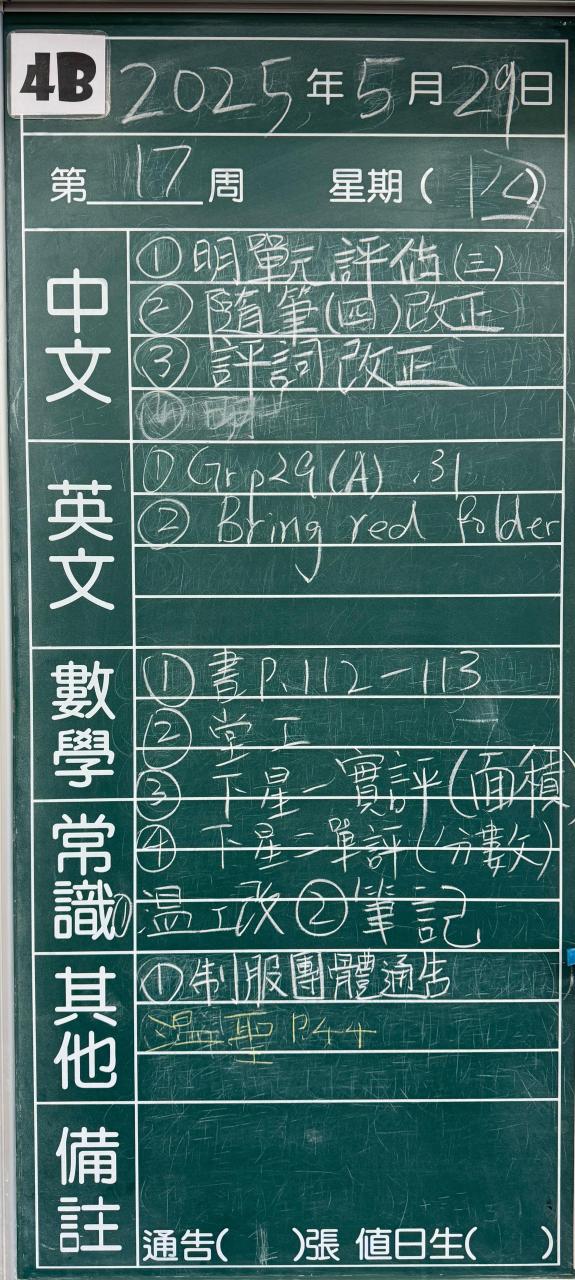 4B 2025年5月29日
第17周 星期(四)
中文
①明單元評估(三)
②隨筆(四)改正
③評詞改正
英文
①Grp29(A).31
②Bring red folder
數學
①書P.112-113
②堂工
③下星一實評(面積)
④下星二單評(分數)
常識
①温工改②筆記
其他
①制服團體通告
温聖P44
備註
通告( )張 值日生( )